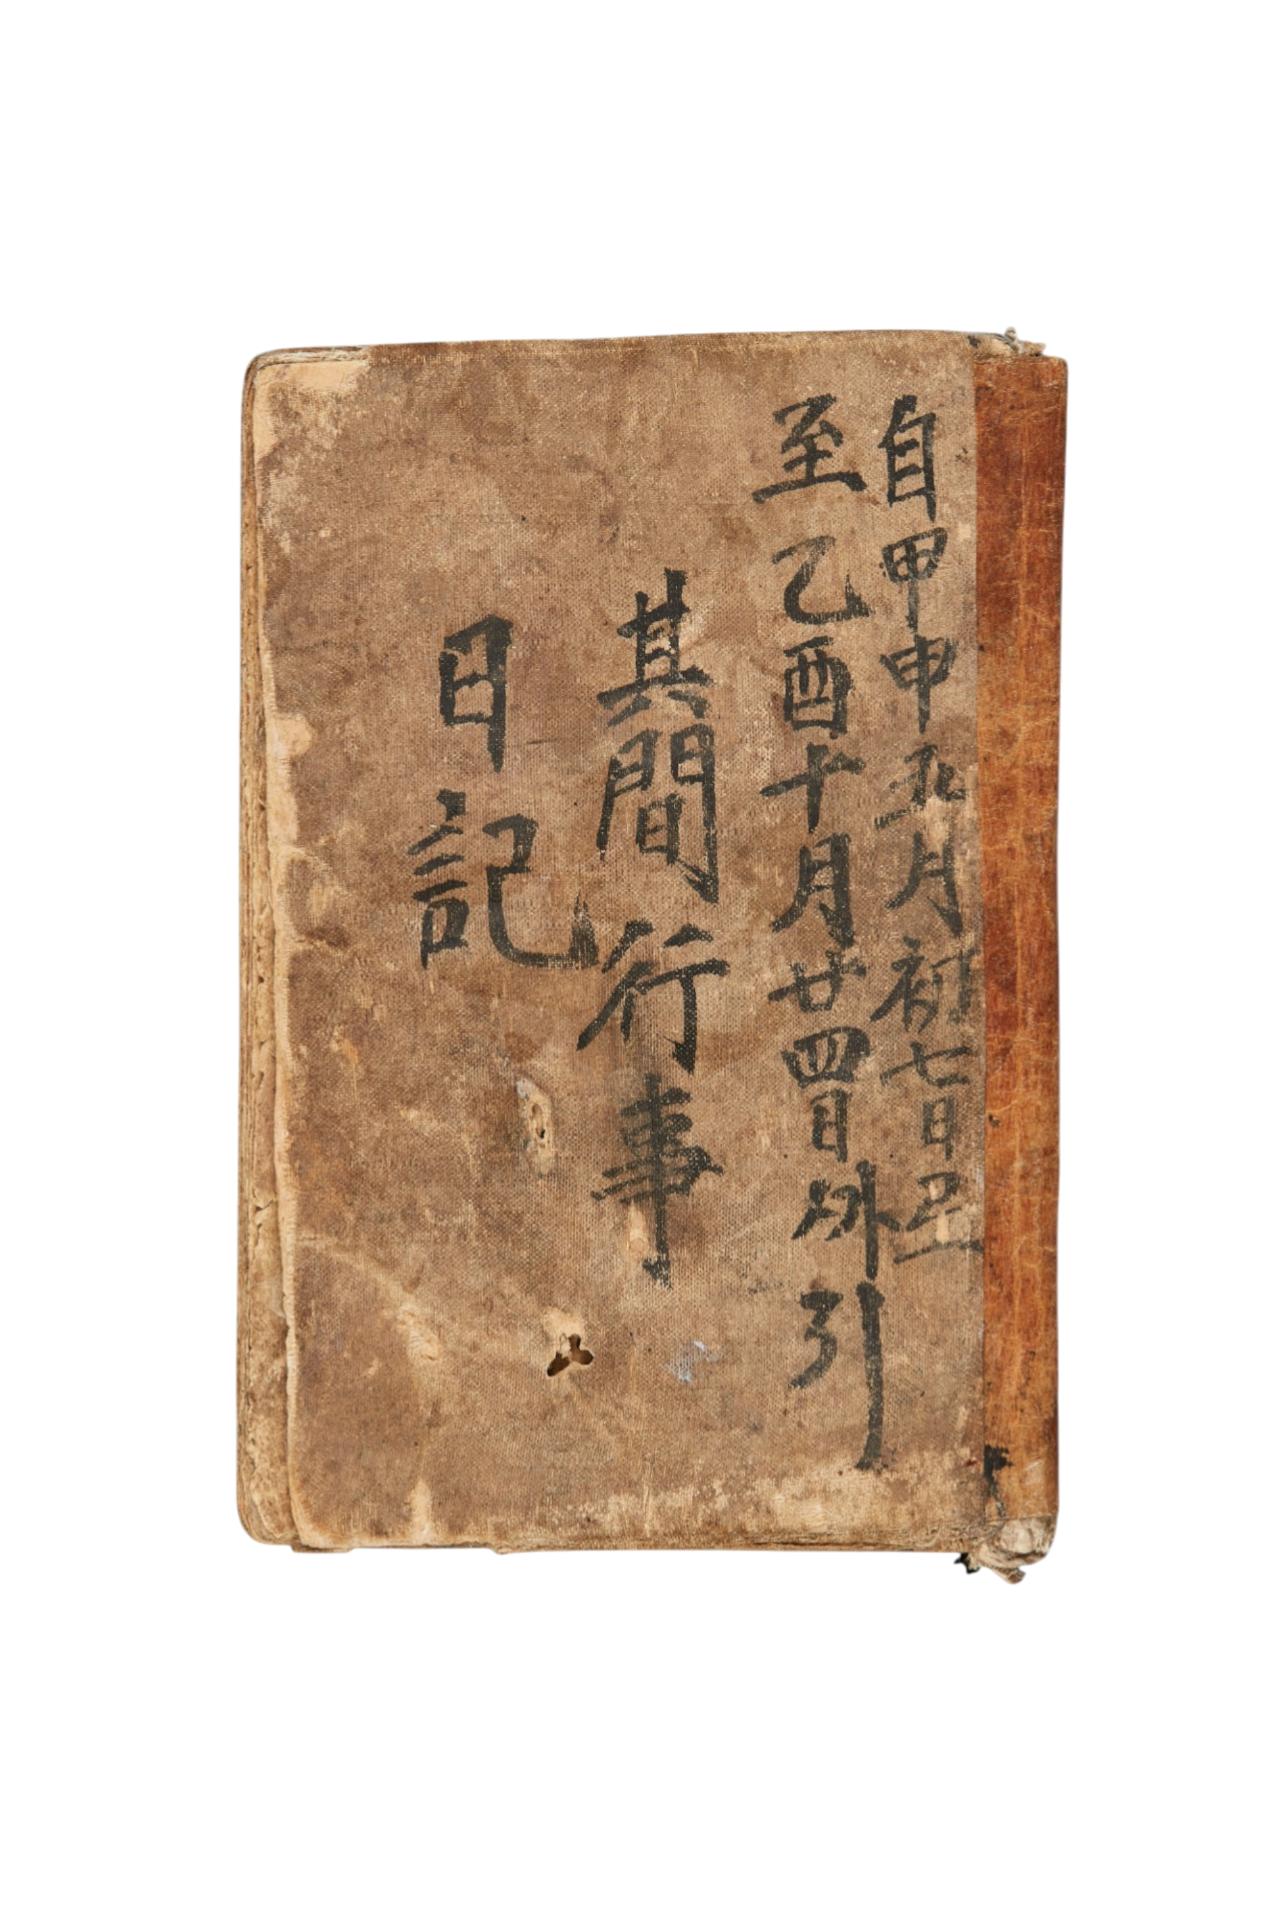 自甲申九月初七日
至乙酉十月廿四日外引
其間行事
日記